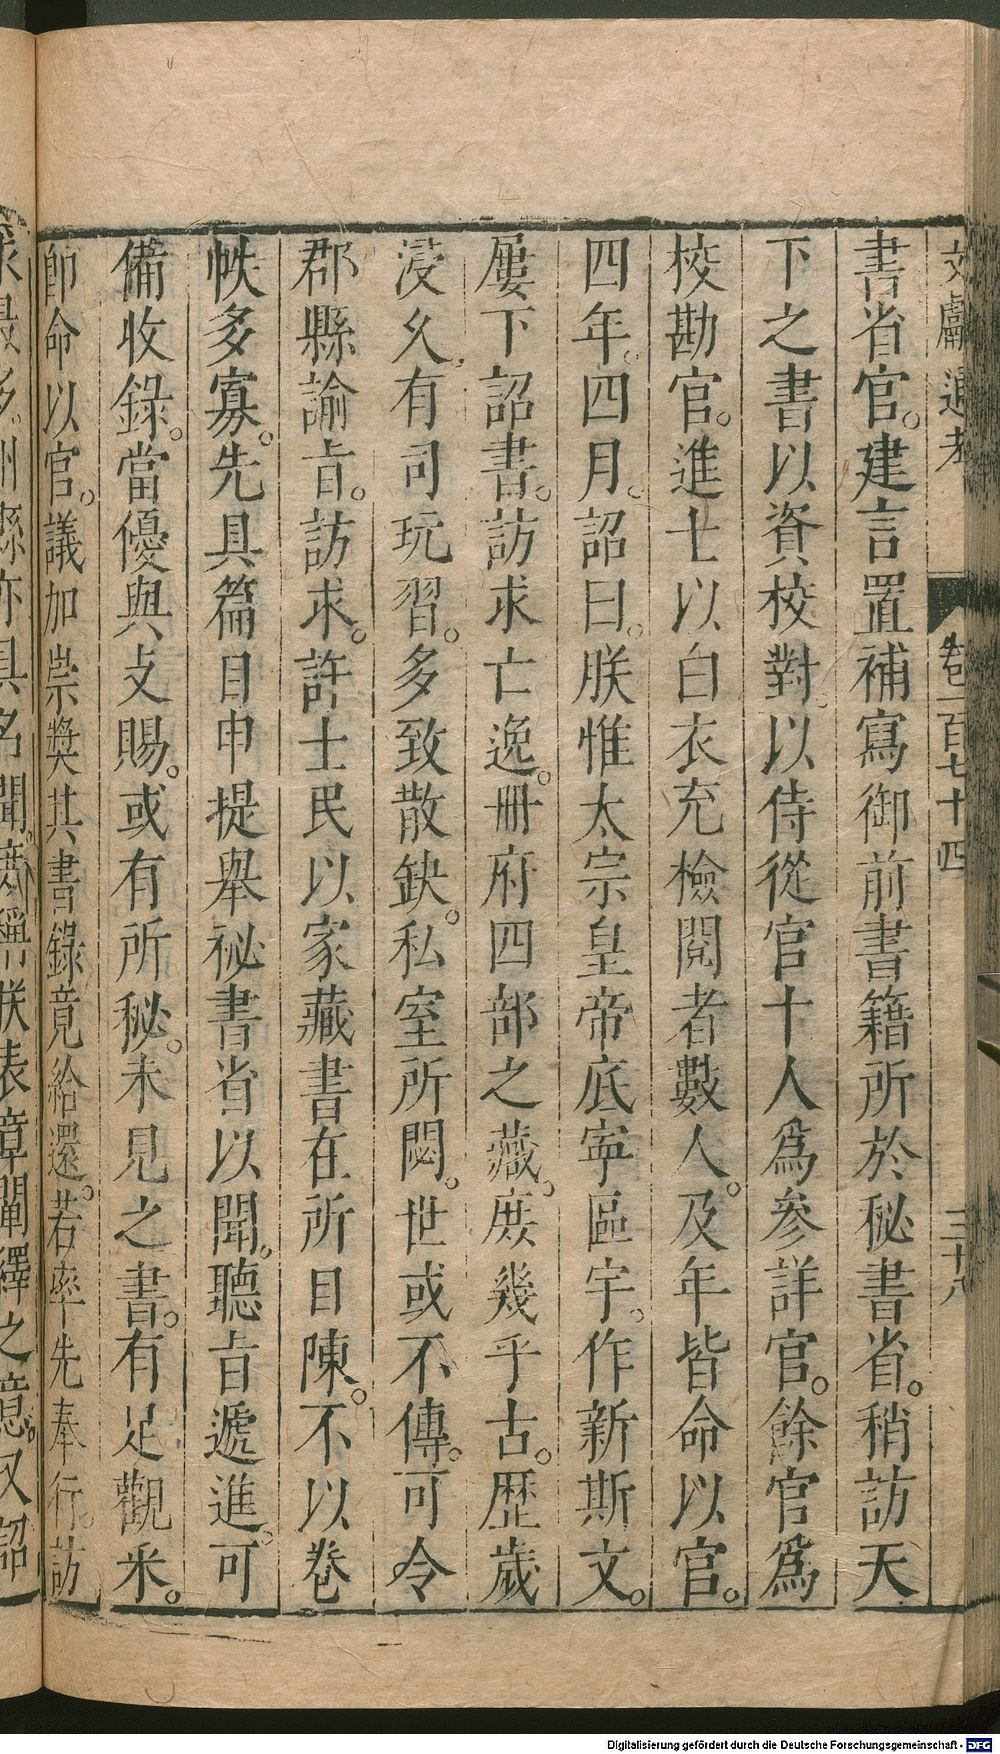 文獻通考 卷一百七十四 三十六
書省官。建言置補寫御前書籍所於秘書省。稍訪天
下之書以資校對。以侍從官十人爲參詳官。餘官爲
校勘官。進士以白衣充檢閱者數人。及年皆命以官。
四年。四月。詔曰。朕惟太宗皇帝底寧區宇。作新斯文。
屢下詔書。訪求亡逸。冊府四部之藏。庶幾乎古。歷歲
浸久。有司玩習。多致散缺。私室所閟。世或不傳。可令
郡縣諭旨。訪求。許士民以家藏書在所自陳。不以卷
帙多寡。先具篇目申提舉秘書省以聞。聽旨遞進。可
備收錄。當優與支賜。或有所秘。未見之書。有足觀采。
即命以官。議加崇獎其書錄竟給還。若率先奉行。訪
求最多。州縣亦具名聞。庶稱朕表章闡繹之意。又詔
Digitalisierung gefördert durch die Deutsche Forschungsgemeinschaft - DFG